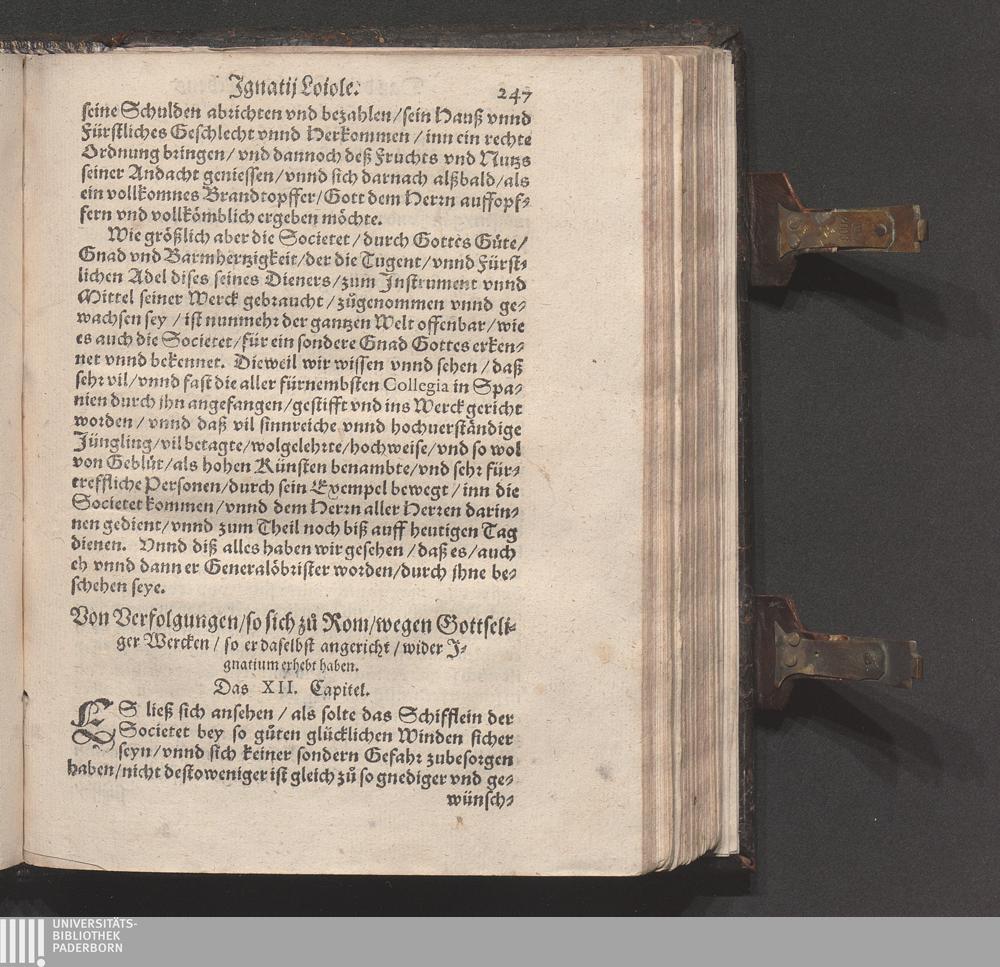 Ignatij Loiole. 247
seine Schulden abrichten vnd bezahlen/sein Hauß vnnd
Fürstliches Geschlecht vnnd Herkommen / inn ein rechte
Ordnung bringen/ vnd dannoch deß Fruchts vnd Nutzs
seiner Andacht geniessen/ vnnd sich darnach alßbald/als
ein vollkomnes Brandtopffer/Gott dem Herrn auffopf-
fern vnd vollkömblich ergeben möchte.
Wie größlich aber die Societet / durch Gottes Güte/
Gnad vnd Barmhertzigkeit/der die Tugent/vnnd Fürst-
lichen Adel dises seines Dieners/zum Instrument vnnd
Mittel seiner Werck gebraucht/zůgenommen vnnd ge-
wachsen sey / ist nunmehr der gantzen Welt offenbar/wie
es auch die Societet/für ein sondere Gnad Gottes erken-
net vnnd bekennet. Dieweil wir wissen vnnd sehen / daß
sehr vil/vnnd fast die aller fürnembsten Collegia in Spa-
nien durch ihn angefangen/gestifft vnd ins Werck gericht
worden / vnnd daß vil sinnreiche vnnd hochuerständige
Jüngling/vil betagte/wolgelehrte/hochweise/vnd so wol
von Geblüt/als hohen Künsten benambte/vnd sehr für-
treffliche Personen/durch sein Exempel bewegt / inn die
Societet kommen/vnnd dem Herrn aller Herren darin-
nen gedient/vnnd zum Theil noch biß auff heutigen Tag
dienen. Vnnd diß alles haben wir gesehen / daß es/auch
eh vnnd dann er Generalöbrister worden/durch ihne be-
schehen seye.
Von Verfolgungen/so sich zů Rom/wegen Gottseli-
ger Wercken / so er daselbst angericht / wider J-
gnatium erhebt haben.
Das XII. Capitel.
ES ließ sich ansehen / als solte das Schifflein der
Societet bey so gůten glücklichen Winden sicher
seyn/vnnd sich keiner sondern Gefahr zubesorgen
haben/nicht destoweniger ist gleich zů so gnediger vnd ge-
wünsch-
UNIVERSITÄTS-
BIBLIOTHEK
PADERBORN